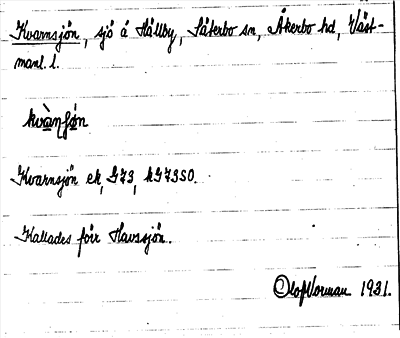 Kvarnsjön, sjö å Hållby, Säterbo sn, Åkerbo hd, Väst-
manl. l.
kvànʃǿn
Kvarnsjön ek, G73, kG73SO.
Kallades förr Havssjön.
Olof Norman 1931.